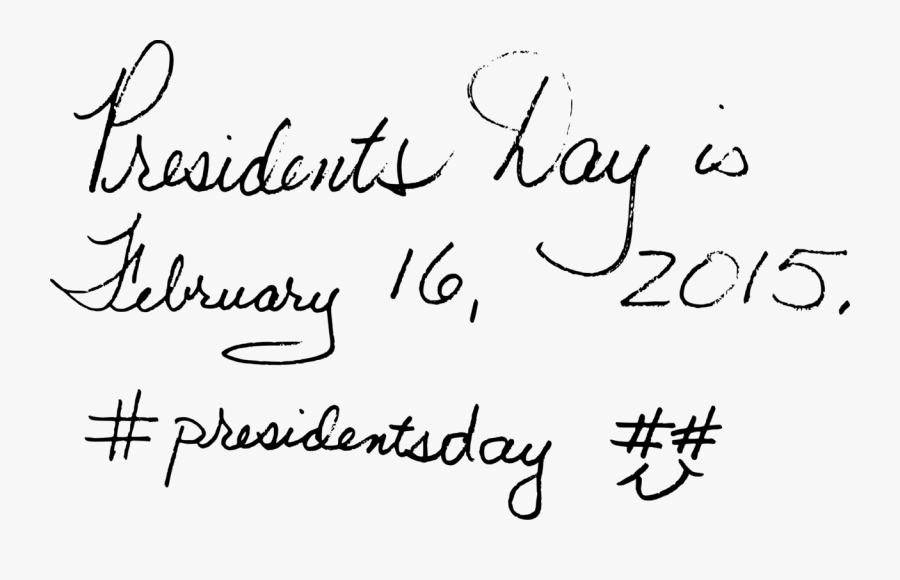 Presidents Day is
February 16, 2015.
#presidentsday ##